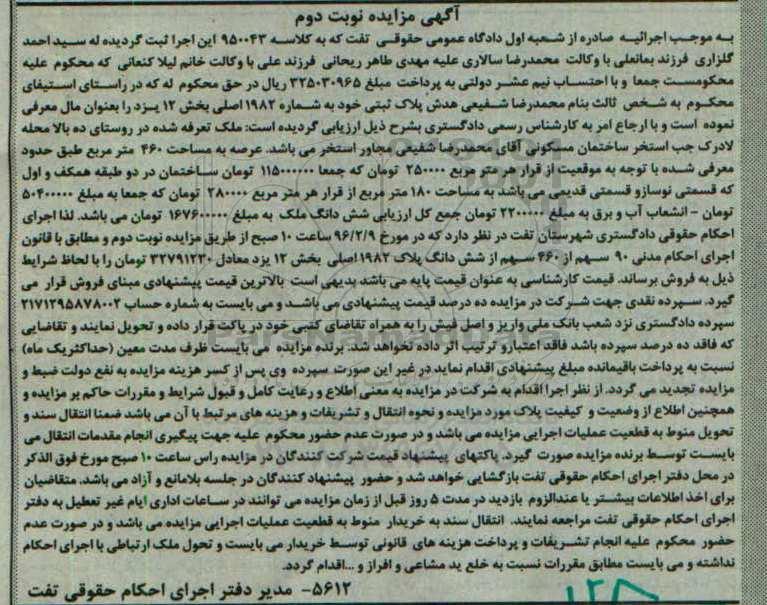 آگهی مزایده نوبت دوم
به موجب اجرائیه صادره از شعبه اول دادگاه عمومی حقوقی تفت که به کلاسه ۹۵۰۰۴۳ این اجرا ثبت گردیده له سید احمد
گلزاری فرزند بمانعلی با وکالت محمدرضا سالاری علیه مهدی طاهر ریحانی فرزند علی با وکالت خانم لیلا کنعانی که محکوم علیه
محکومست جمعا و با احتساب نیم عشر دولتی به پرداخت مبلغ ۳۲۵۰۳۰۹۶۵ ریال در حق محکوم له که در راستای استیفای
محکوم به شخص ثالث بنام محمدرضا شفیعی هدش پلاک ثبتی خود به شماره ۱۹۸۲ اصلی بخش ۱۲ یزد را بعنوان مال معرفی
نموده است و با ارجاع امر به کارشناس رسمی دادگستری بشرح ذیل ارزیابی گردیده است: ملک تعرفه شده در روستای ده بالا محله
لادرک جب استخر ساختمان مسکونی آقای محمدرضا شفیعی مجاور استخر می باشد. عرصه به مساحت ۴۶۰ متر مربع طبق حدود
معرفی شده با توجه به موقعیت از قرار هر متر مربع ۲۵۰۰۰۰ تومان که جمعا ۱۱۵۰۰۰۰۰۰ تومان ساختمان در دو طبقه همکف و اول
که قسمتی نوسازو قسمتی قدیمی می باشد به مساحت ۱۸۰ متر مربع از قرار هر متر مربع ۲۸۰۰۰۰ تومان که جمعا به مبلغ ۵۰۴۰۰۰۰۰
تومان - انشعاب آب و برق به مبلغ ۲۲۰۰۰۰۰ تومان جمع کل ارزیابی شش دانگ ملک به مبلغ ۱۶۷۶۰۰۰۰۰ تومان می باشد. لذا اجرای
احکام حقوقی دادگستری شهرستان تفت در نظر دارد که در مورخ ۹۶/۲/۹ ساعت ۱۰ صبح از طریق مزایده نوبت دوم و مطابق با قانون
اجرای احکام مدنی ۹۰ سهم از ۴۶۰ سهم از شش دانگ پلاک ۱۹۸۲ اصلی بخش ۱۲ یزد معادل ۳۲۷۹۱۲۳۰ تومان را با لحاظ شرایط
ذیل به فروش برساند. قیمت کارشناسی به عنوان قیمت پایه می باشد بدیهی است بالاترین قیمت پیشنهادی مبنای فروش قرار می
گیرد. سپرده نقدی جهت شرکت در مزایده ده درصد قیمت پیشنهادی می باشد و می بایست به شماره حساب ۲۱۷۱۲۹۵۸۷۸۰۰۲
سپرده دادگستری نزد شعب بانک ملی واریز و اصل فیش را به همراه تقاضای کتبی خود در پاکت قرار داده و تحویل نمایند و تقاضایی
که فاقد ده درصد سپرده باشد فاقد اعتبارو ترتیب اثر داده نخواهد شد. برنده مزایده می بایست ظرف مدت معین (حداکثریک ماه)
نسبت به پرداخت باقیمانده مبلغ پیشنهادی اقدام نماید.در غیر این صورت سپرده وی پس از کسر هزینه مزایده به نفع دولت ضبط و
مزایده تجدید می گردد. از نظر اجرا اقدام به شرکت در مزایده به معنی اطلاع و رعایت کامل و قبول شرایط و مقررات حاکم بر مزایده و
همچنین اطلاع از وضعیت و کیفیت پلاک مورد مزایده و نحوه انتقال و تشریفات و هزینه های مرتبط با آن می باشد ضمنا انتقال سند و
تحویل منوط به قطعیت عملیات اجرایی مزایده می باشد و در صورت عدم حضور محکوم علیه جهت پیگیری انجام مقدمات انتقال می
بایست توسط برنده مزایده صورت گیرد. پاکتهای پیشنهاد قیمت شرکت کنندگان در مزایده راس ساعت ۱۰ صبح مورخ فوق الذکر
در محل دفتر اجرای احکام حقوقی تفت بازگشایی خواهد شد و حضور پیشنهاد کنندگان در جلسه بلامانع و آزاد می باشد. متقاضیان
برای اخذ اطلاعات بیشتر یا عندالزوم بازدید در مدت ۵ روز قبل از زمان مزایده می توانند در ساعات اداری ایام غیر تعطیل به دفتر
اجرای احکام حقوقی تفت مراجعه نمایند. انتقال سند به خریدار منوط به قطعیت عملیات اجرایی مزایده می باشد و در صورت عدم
حضور محکوم علیه انجام تشریفات و پرداخت هزینه های قانونی توسط خریدار می بایست و تحول ملک ارتباطی با اجرای احکام
نداشته و می بایست مطابق مقررات نسبت به خلع ید مشاعی و افراز و ...اقدام گردد.
۵۶۱۲- مدیر دفتر اجرای احکام حقوقی تفت